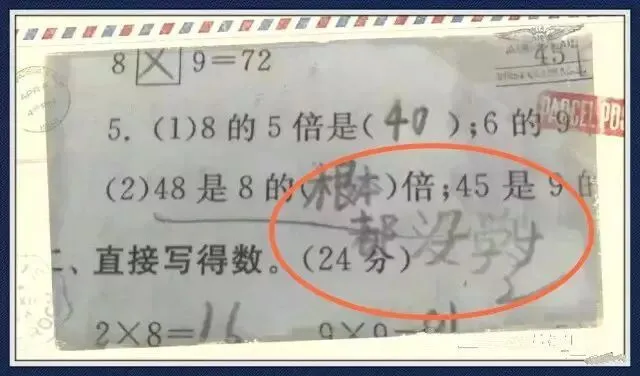 8 × 9=72
5. (1)8 的 5 倍是( 40 );6 的 9
(2)48 是 8 的(根本)倍;45 是 9 的
都没学
二、直接写得数。(24 分)
2×8=16 9×9=81
45
PARCEL POS